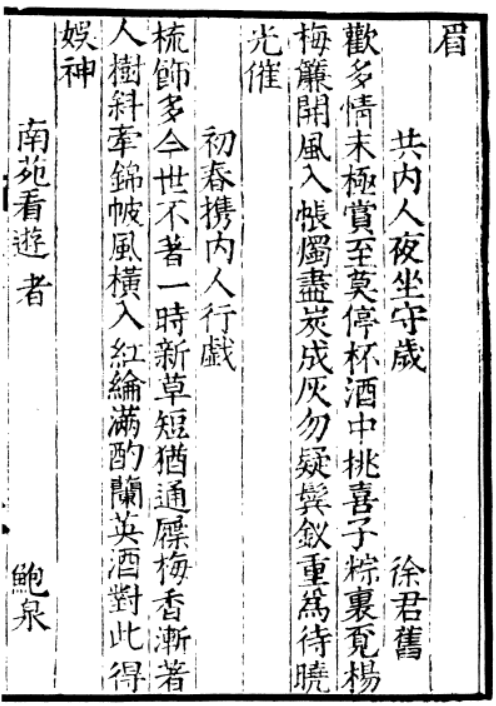 眉
共内人夜坐守歲　徐君舊
歡多情未極賞至莫停杯酒中挑喜子粽裏覓楊
梅簾開風入帳燭盡炭成灰勿疑鬂釵重爲待曉
光催
初春攜内人行戲
梳飾多今世不著一時新草短猶通屧梅香漸著
人樹斜牽錦帔風橫入紅綸滿酌蘭英酒對此得
娛神
南苑看遊者　鮑泉